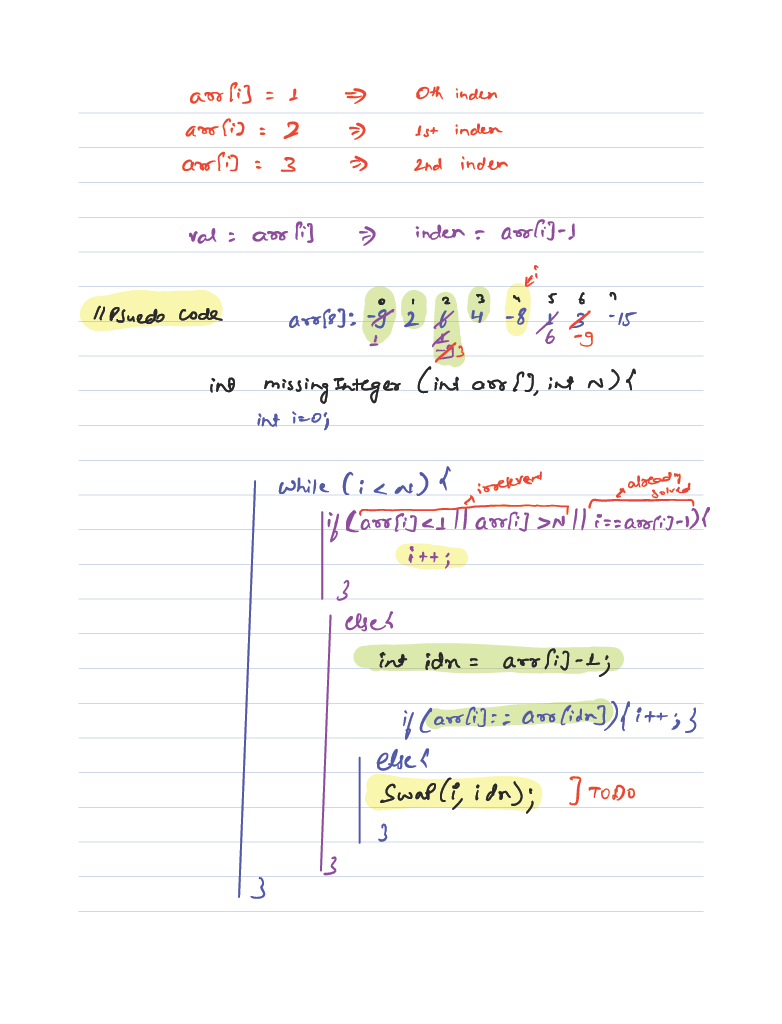 arr[i] = 1 ⇒ 0th index
arr[i] = 2 ⇒ 1st index
arr[i] = 3 ⇒ 2nd index
val = arr[i] ⇒ index = arr[i]-1
i
0 1 2 3 4 5 6 7
//Psuedo Code arr[8]: -9 2 6 4 -8 1 3 -15
1 1 6 -9
-9 3
int missingInteger (int arr[], int N) {
int i=0;
while (i < N) {
irrelevent already solved
if (arr[i]<1 || arr[i] >N || i==arr[i]-1) {
i++;
}
else{
int idx = arr[i]-1;
if (arr[i]== arr[idx]) { i++; }
else{
Swap(i, idx); ] TODO
}
}
}